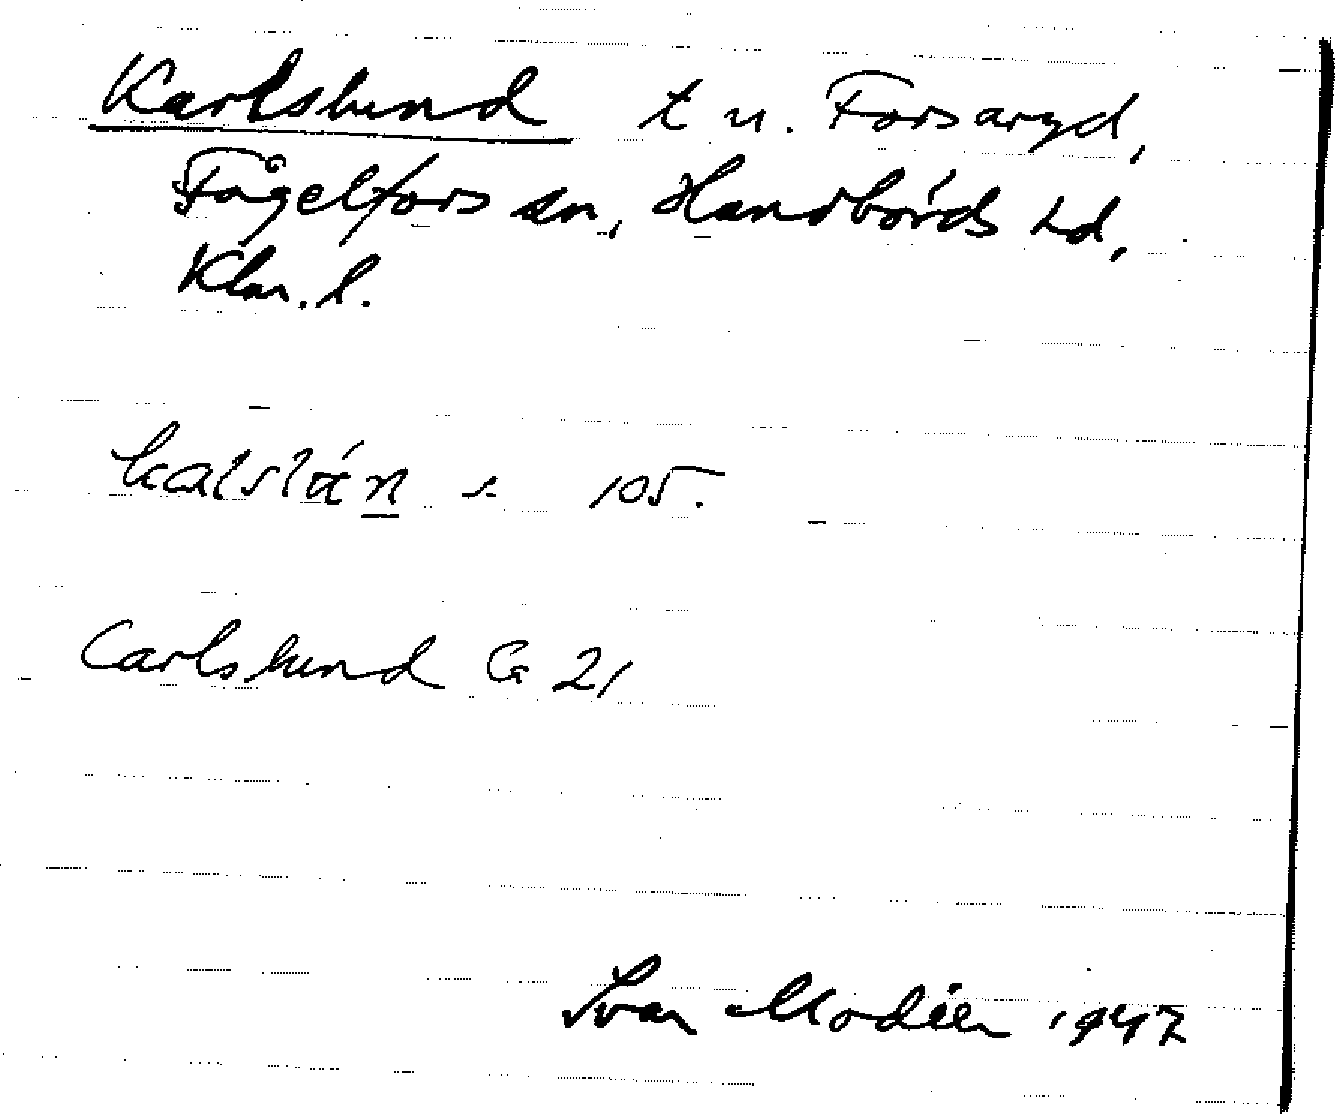 Karlslund t u. Forsaryd,
Fågelfors sn, Handbörds hd,
Klm. l.
105.
Carlslund Ca 21
Ivar Modéer 1947